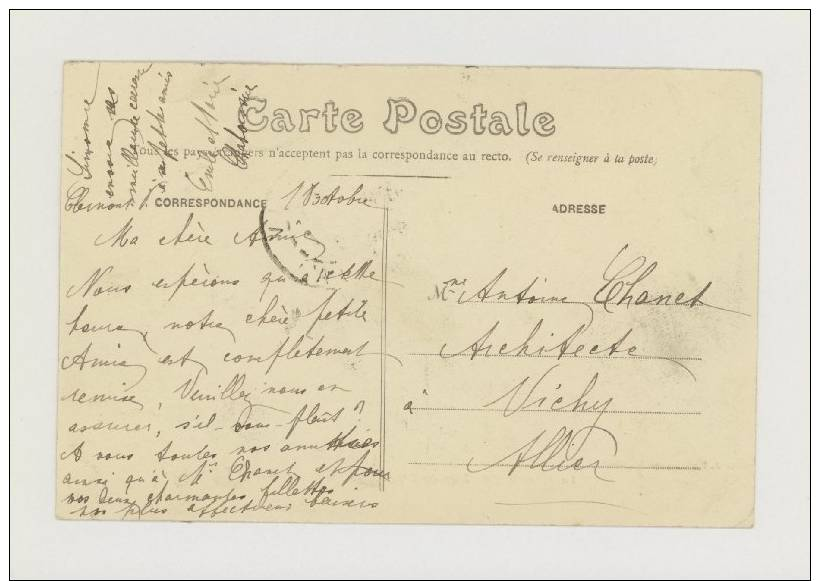 Carte Postale
Tous les pays étrangers n'acceptent pas la correspondance au recto. (Se renseigner à la poste)
CORRESPONDANCE
ADRESSE
Clermont 18 octobre
Ma chère Amie
Nous espérons qu'à cette
heure, notre chère petite
Amie est complètement
remise, Veuillez nous en
assurer, s'il-vous-plaît?
A vous toutes nos amitiés
ainsi qu'à Mr Chanet et pour
vos deux charmantes fillettes
nos plus affectueux baisers
Simonne
envoie ses
meilleures caresses
à ses petites amies
Emile et Marie
Mme Antoine Chanet
Architecte
à Vichy
Allier